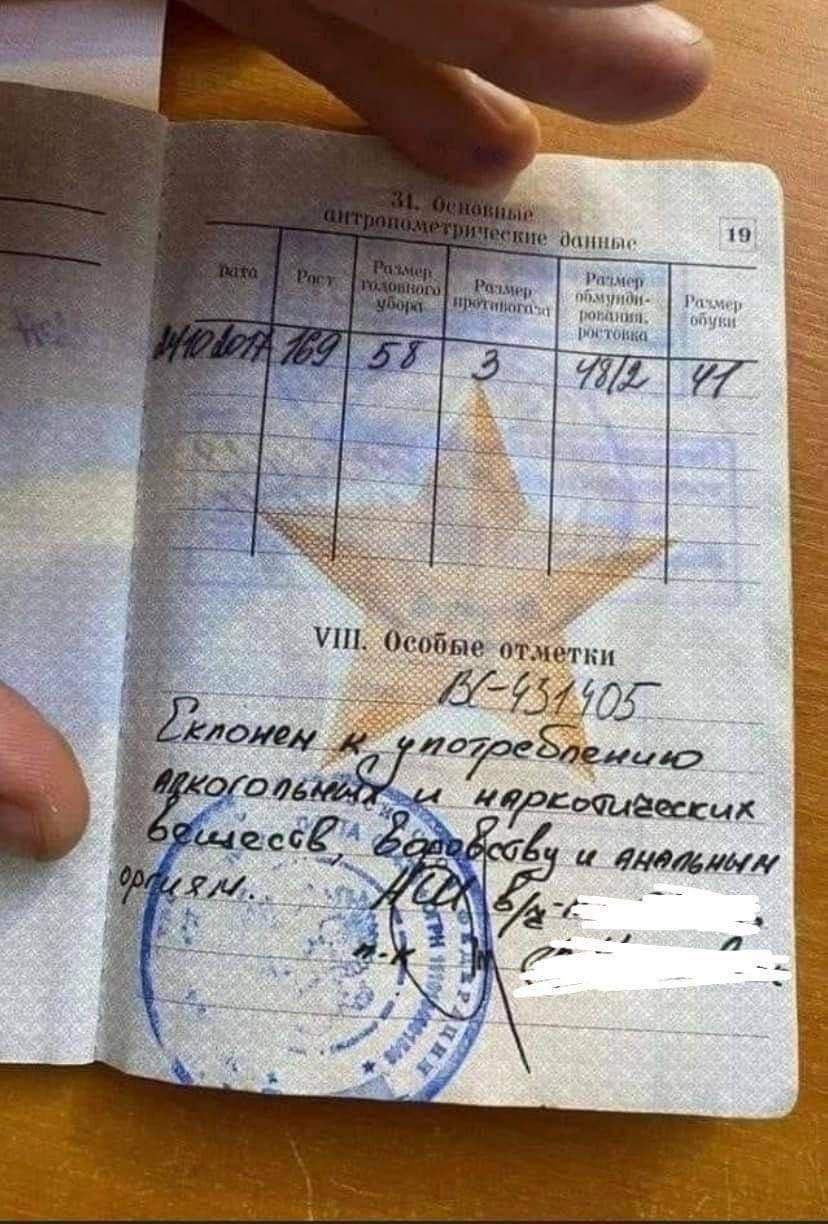 31. Основные
антропометрические данные
19
Дата Рост Размер головного убора Размер противогаза Размер обмундирования, ростовка Размер обуви
24.10.2017 169 58 3 48/2 41
VIII. Особые отметки
ВС-431405
Склонен к употреблению
алкогольных и наркотических
веществ, воровству и анальным
оргиям. НШ в/ч
п-к